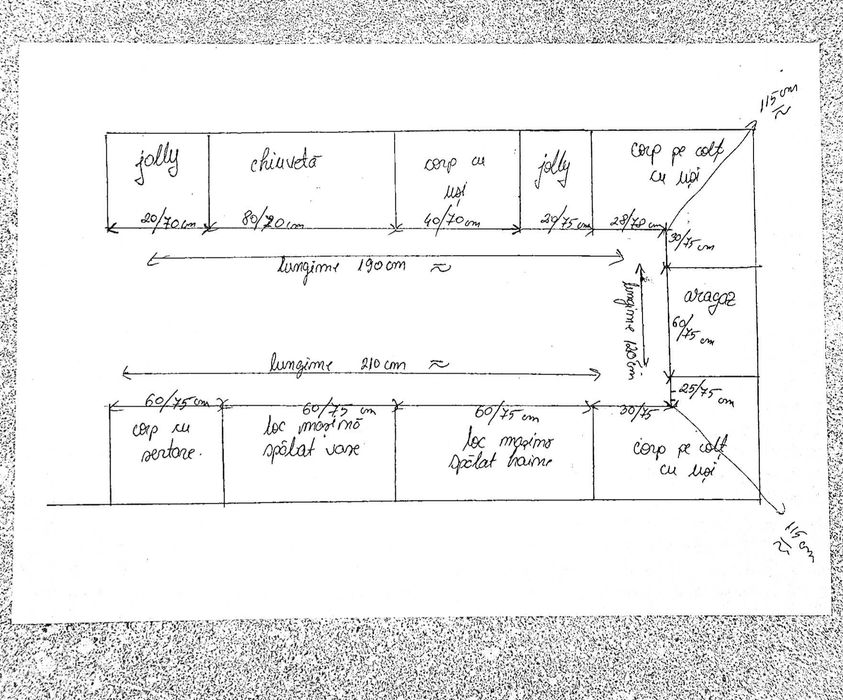 115 cm
≈
jolly
chiuvetă
corp cu
uși
jolly
corp pe colț
cu uși
20/70 cm
80/70 cm
40/70 cm
20/75 cm
28/78 cm
30/75 cm
lungime 190 cm ≈
aragaz
lungime 120 cm
60/75 cm
lungime 210 cm ≈
25/75 cm
60/75 cm
60/75 cm
60/75 cm
30/75
corp cu
sertare.
loc mașină
spălat vase
loc mașină
spălat haine
corp pe colț
cu uși
115 cm
≈